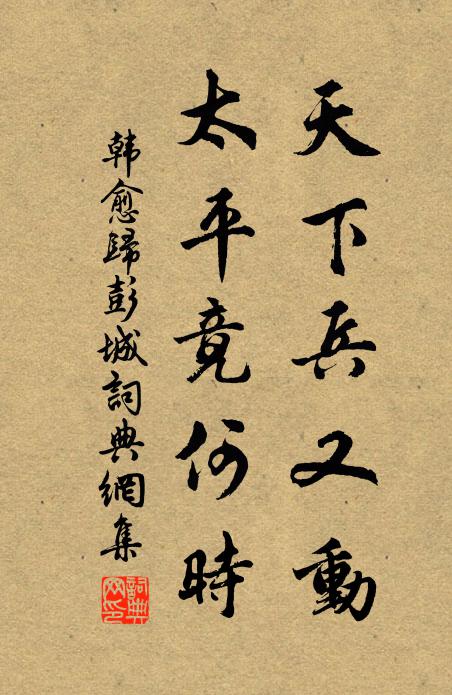 天下兵又動
太平竟何時
韓愈歸彭城詞典網集
詞典
网印